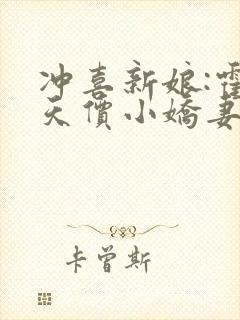 冲喜新娘:霍
天價小嬌妻
卡曾斯